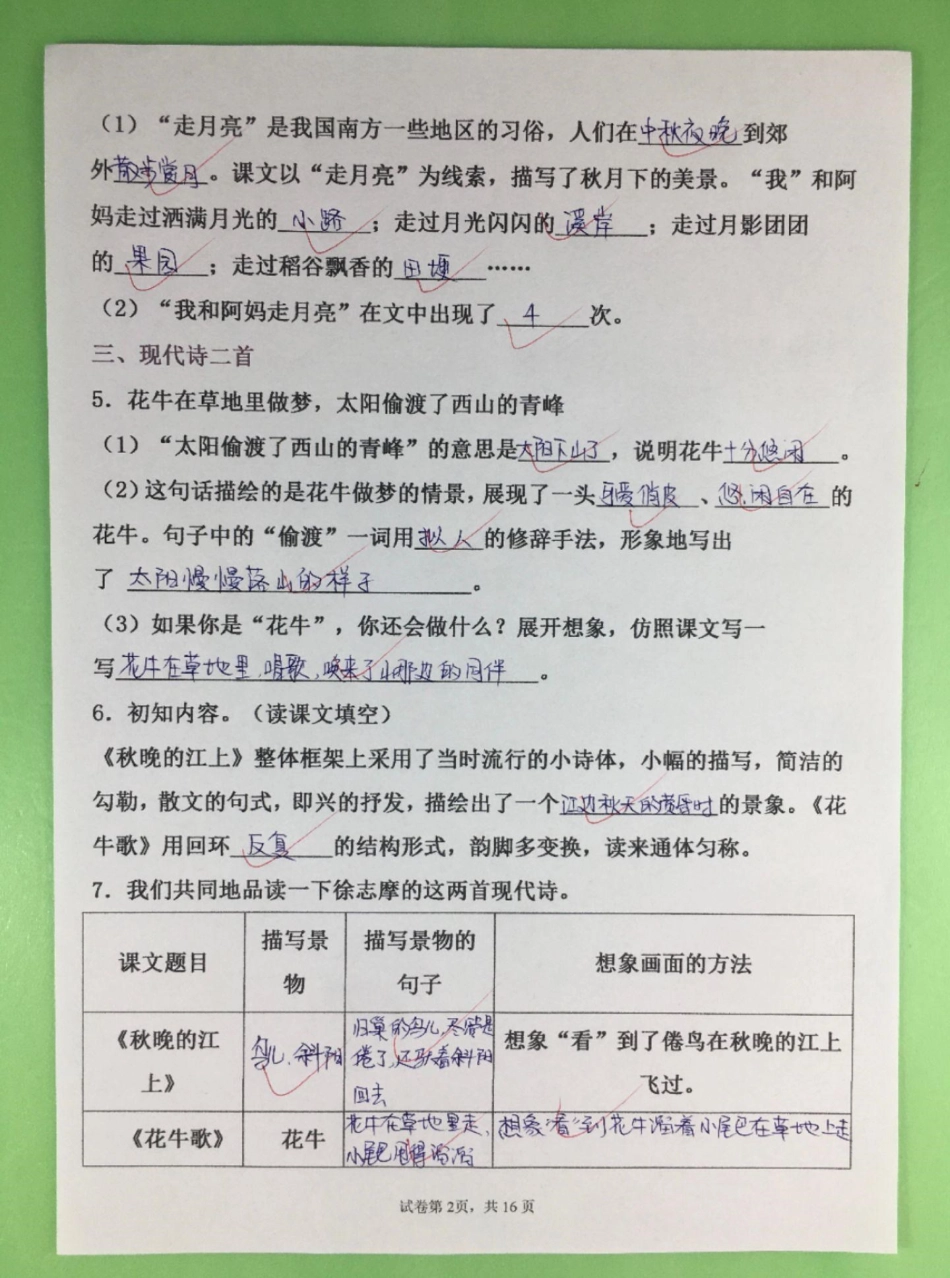 （1）“走月亮”是我国南方一些地区的习俗，人们在中秋夜晚到郊
外散步赏月。课文以“走月亮”为线索，描写了秋月下的美景。“我”和阿
妈走过洒满月光的 小路 ；走过月光闪闪的 溪岸 ；走过月影团团
的 果园 ；走过稻谷飘香的 田埂 ……
（2）“我和阿妈走月亮”在文中出现了 4 次。
三、现代诗二首
5．花牛在草地里做梦，太阳偷渡了西山的青峰
（1）“太阳偷渡了西山的青峰”的意思是太阳下山了，说明花牛十分悠闲。
（2）这句话描绘的是花牛做梦的情景，展现了一头可爱俏皮、悠闲自在的
花牛。句子中的“偷渡”一词用拟人的修辞手法，形象地写出
了 太阳慢慢落山的样子 。
（3）如果你是“花牛”，你还会做什么？展开想象，仿照课文写一
写花牛在草地里，唱歌，唤来了 的同伴 。
6．初知内容。（读课文填空）
《秋晚的江上》整体框架上采用了当时流行的小诗体，小幅的描写，简洁的
勾勒，散文的句式，即兴的抒发，描绘出了一个江边秋天的黄昏时的景象。《花
牛歌》用回环 反复 的结构形式，韵脚多变换，读来通体匀称。
7．我们共同地品读一下徐志摩的这两首现代诗。
课文题目 描写景物 描写景物的句子 想象画面的方法
《秋晚的江上》 鸟儿、斜阳 归巢的鸟儿，尽管是倦了，还驮着斜阳回去 想象“看”到了倦鸟在秋晚的江上飞过。
《花牛歌》 花牛 花牛在草地里走，小尾巴甩得滴溜 想象“看”到花牛 着小尾巴在草地上走
试卷第 2页，共 16 页